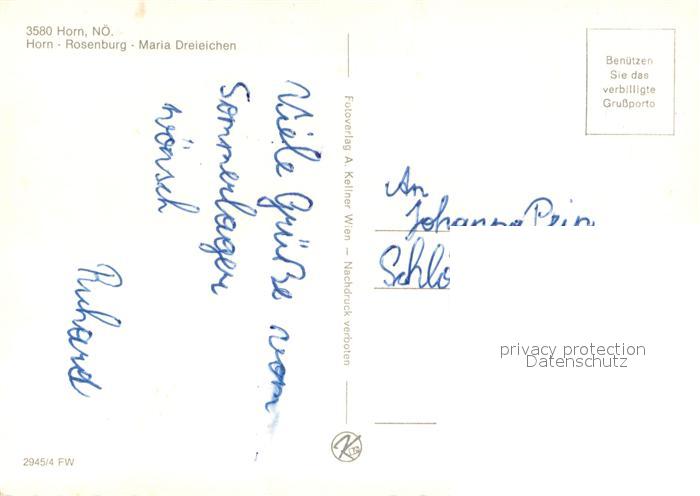 3580 Horn, NÖ.
Horn - Rosenburg - Maria Dreieichen
Viele Grüße vom
Sommerlager
wönsch
Richard
Fotoverlag A. Kellner Wien — Nachdruck verboten
Benützen
Sie das
verbilligte
Grußporto
An
Johanna
Schlö
privacy protection
Datenschutz
2945/4 FW